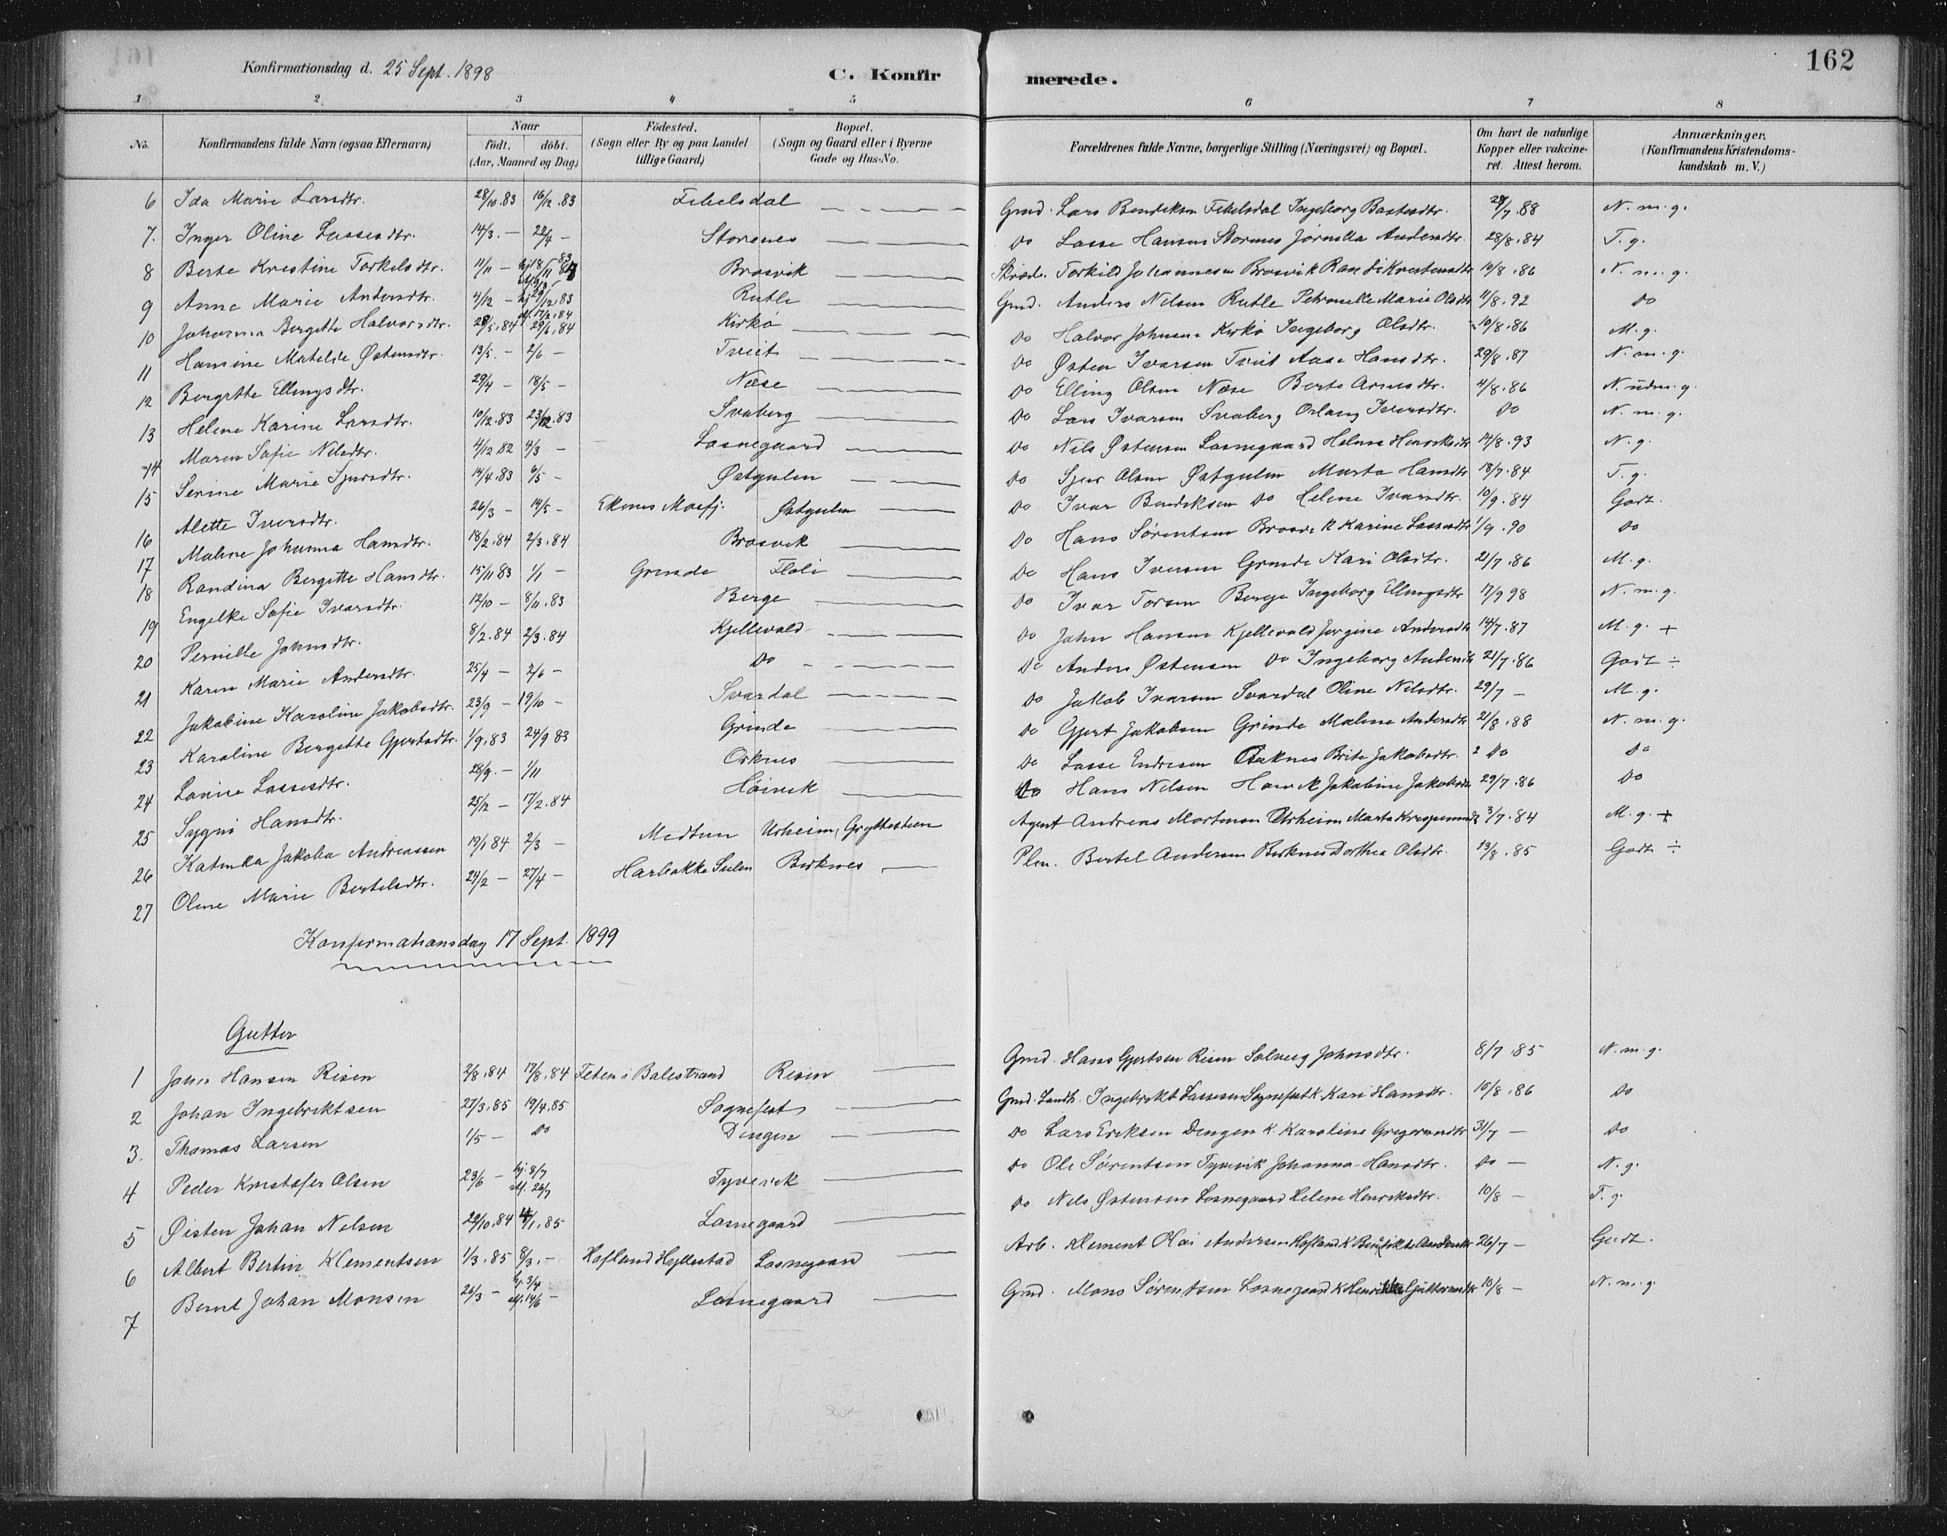 162
Konfirmationsdag d. 25 Sept. 1898
C. Konfir merede.
1 2 3 4 5 6 7 8
No. Konfirmandens fulde Navn (ogsaa Efternavn) Naar født. døbt. (Aar, Maaned og Dag) Födested. (Sogn eller By og paa Landet tillige Gaard) Bopæl. (Sogn og Gaard eller i Byerne Gade og Hus-No. Forældrenes fulde Navne, borgerlige Stilling (Næringsvei) og Bopæl. Om havt de naturlige Kopper eller vakcineret. Attest herom. Anmærkninger. (Konfirmandens Kristendomskundskab m. V.)
6 Ida Marie Larsdtr. 28/10.83 16/12.83 Lars Bendiksen Ingeborg /7.88 N. m. g.
7. Inger Oline Lassesdtr. 14/3.— 22/4 — Storenes do Lasse Hansen Storenes Andersdtr. 28/8.84 T. g.
8 Berte Kristine Torkelsdtr. 11/11 — Brosvik Torkild Johannesen Brosvik 14/8.86 N. m. g.
9 Anne Marie Andersdtr. 4/12 — Rutle Grnd. Anders Nelsen Rutle Petronelle Marie Olsdtr 11/8.92 do
10 Johanna Bergette Halvorsdtr. 28/5.84 29/6.84 Kirkø do Halvor Johnsen Kirkø Ingeborg Olsdtr. 10/8.86 M. g.
11 Hansine Matilde Østensdtr. 13/5. — 2/6 — Tveit do Østen Ivarsen Tveit Aase Hansdtr. 29/8.87 N. m. g.
12 Bergitte Ellingsdtr. 29/4 — 18/5 — Næse do Elling Olsen Næse Berte Arnesdtr. 4/8.86 N. udm. g.
13 Helene Karine Larsdtr. 10/12.83 23/12.83 Svaberg do Lars Ivarsen Svaberg Iversdtr. do N. m. g.
14 Maren Sofie Nilsdtr. 4/12 82 4/3 — Losnegaard do Nils Østensen Losnegaard Helene Henriksdtr 14/8.93 N. g.
15 Serine Marie Sjursdtr. 14/4.83 /5 — Østgulen do Sjur Olsen Østgulen Marta Hansdtr 18/7.84 T. g.
16 Alette Iversdtr. 26/3 — 14/5 — Østgulen do Ivar Bendiksen do Helene Ivarsdtr. 10/9.84 Godt.
17 Malene Johanna Hansdtr. 18/2.84 2/3.84 Brosvik do Hans Sørensen Brosvik Karine Lassesdtr 1/9.90 do
18 Randina Bergitte Hansdtr. 15/11 83 1/1 — Grinde Floli do Hans Iversen Grinde Kari Olsdtr. 21/7.86 M. g.
19 Engelke Sofie Ivarsdtr. 12/10 — 8/11.83 Berge do Ivar Torsen Berge Ingeborg Ellingsdtr 17/9 98 N. m. g.
20 Pernille Johnsdtr. 8/2.84 2/3.84 Kjellevold do John Hansen Kjellevold Jorgine Andersdtr 14/7.87 M. g. +
21 Karen Marie Andersdtr. 25/4 — 2/6 — do do Anders Østensen do Ingeborg Andersdtr 21/7.86 Godt ÷
22 Jakobine Karoline Jakobsdtr. 23/9 — 19/10 — Svardal do Jakob Ivarsen Svardal Oline Nilsdtr. 29/7 — M. g.
23 Karoline Bergitte Gjertsdtr. 1/9.83 24/9 83 Grinde do Gjert Jakobsen Grinde Malene Andersdtr 21/8.88 N. m. g.
24 Lovise Lassesdtr. 28/9. — 1/11 Orknes do Lasse Endresen Brite Jakobsdtr. do do
25 Sygni Hansdtr. 25/2 — 17/2.84 Høivik do Hans Nelsen Jakobine Jakobsdtr 29/7.86 do
26 Katinka Jakoba Andreassen 19/1 84 2/3 — Urheim, Gryttestein Agent Andreas Mortensen Urheim Marta 3/7.84 M. g. +
27 Oline Marie Bertelsdtr. 24/2 — 27/4 — Harbakke Sulen Birknes Bertel Andersen Birknes Dorthea Olsdtr. 13/8.85 Godt ÷
Konfirmationsdag 17 Sept. 1899
Gutter
1 Johan Hansen Risen 2/8.84 17/8.84 Feten i Balestrand Risen Grnd. Hans Gjertsen Risen Solveig Johnsdtr. 8/7.85 N. m. g.
2 Johan Ingebriktsen 27/3.85 19/4.85 Sognefest Grnd. Landh. Ingebrikt Lassesen Sognefest K. Kari Hansdtr. 10/8.86 do
3. Thomas Larsen 1/5 — do Dingen do Lars Eriksen Dingen K. Karoline 31/7 — do
4 Peder Kristofer Olsen 23/6 — hj. 8/7 26/7 Tyvevik do Ole Sørensen Johanna Hansdtr. do — N. g.
5 Øisten Johan Nelsen 22/10.84 /1.85 Losnegaard do Nels Østensen Losnegaard Helene Henriksdtr. 10/8 — T. g.
6 Albert Bertin Klementsen 1/3.85 8/3.— Hafland Hyllestad Losnegaard Arb. Klement Andersen Hafland K. 26/7 — Godt.
7 Bernt Johan Monsen 26/3 — hj. 3/4 14/6 — Losnegaard Grnd. Mons Sørensen Losnegaard K. 10/8 — N. m. g.